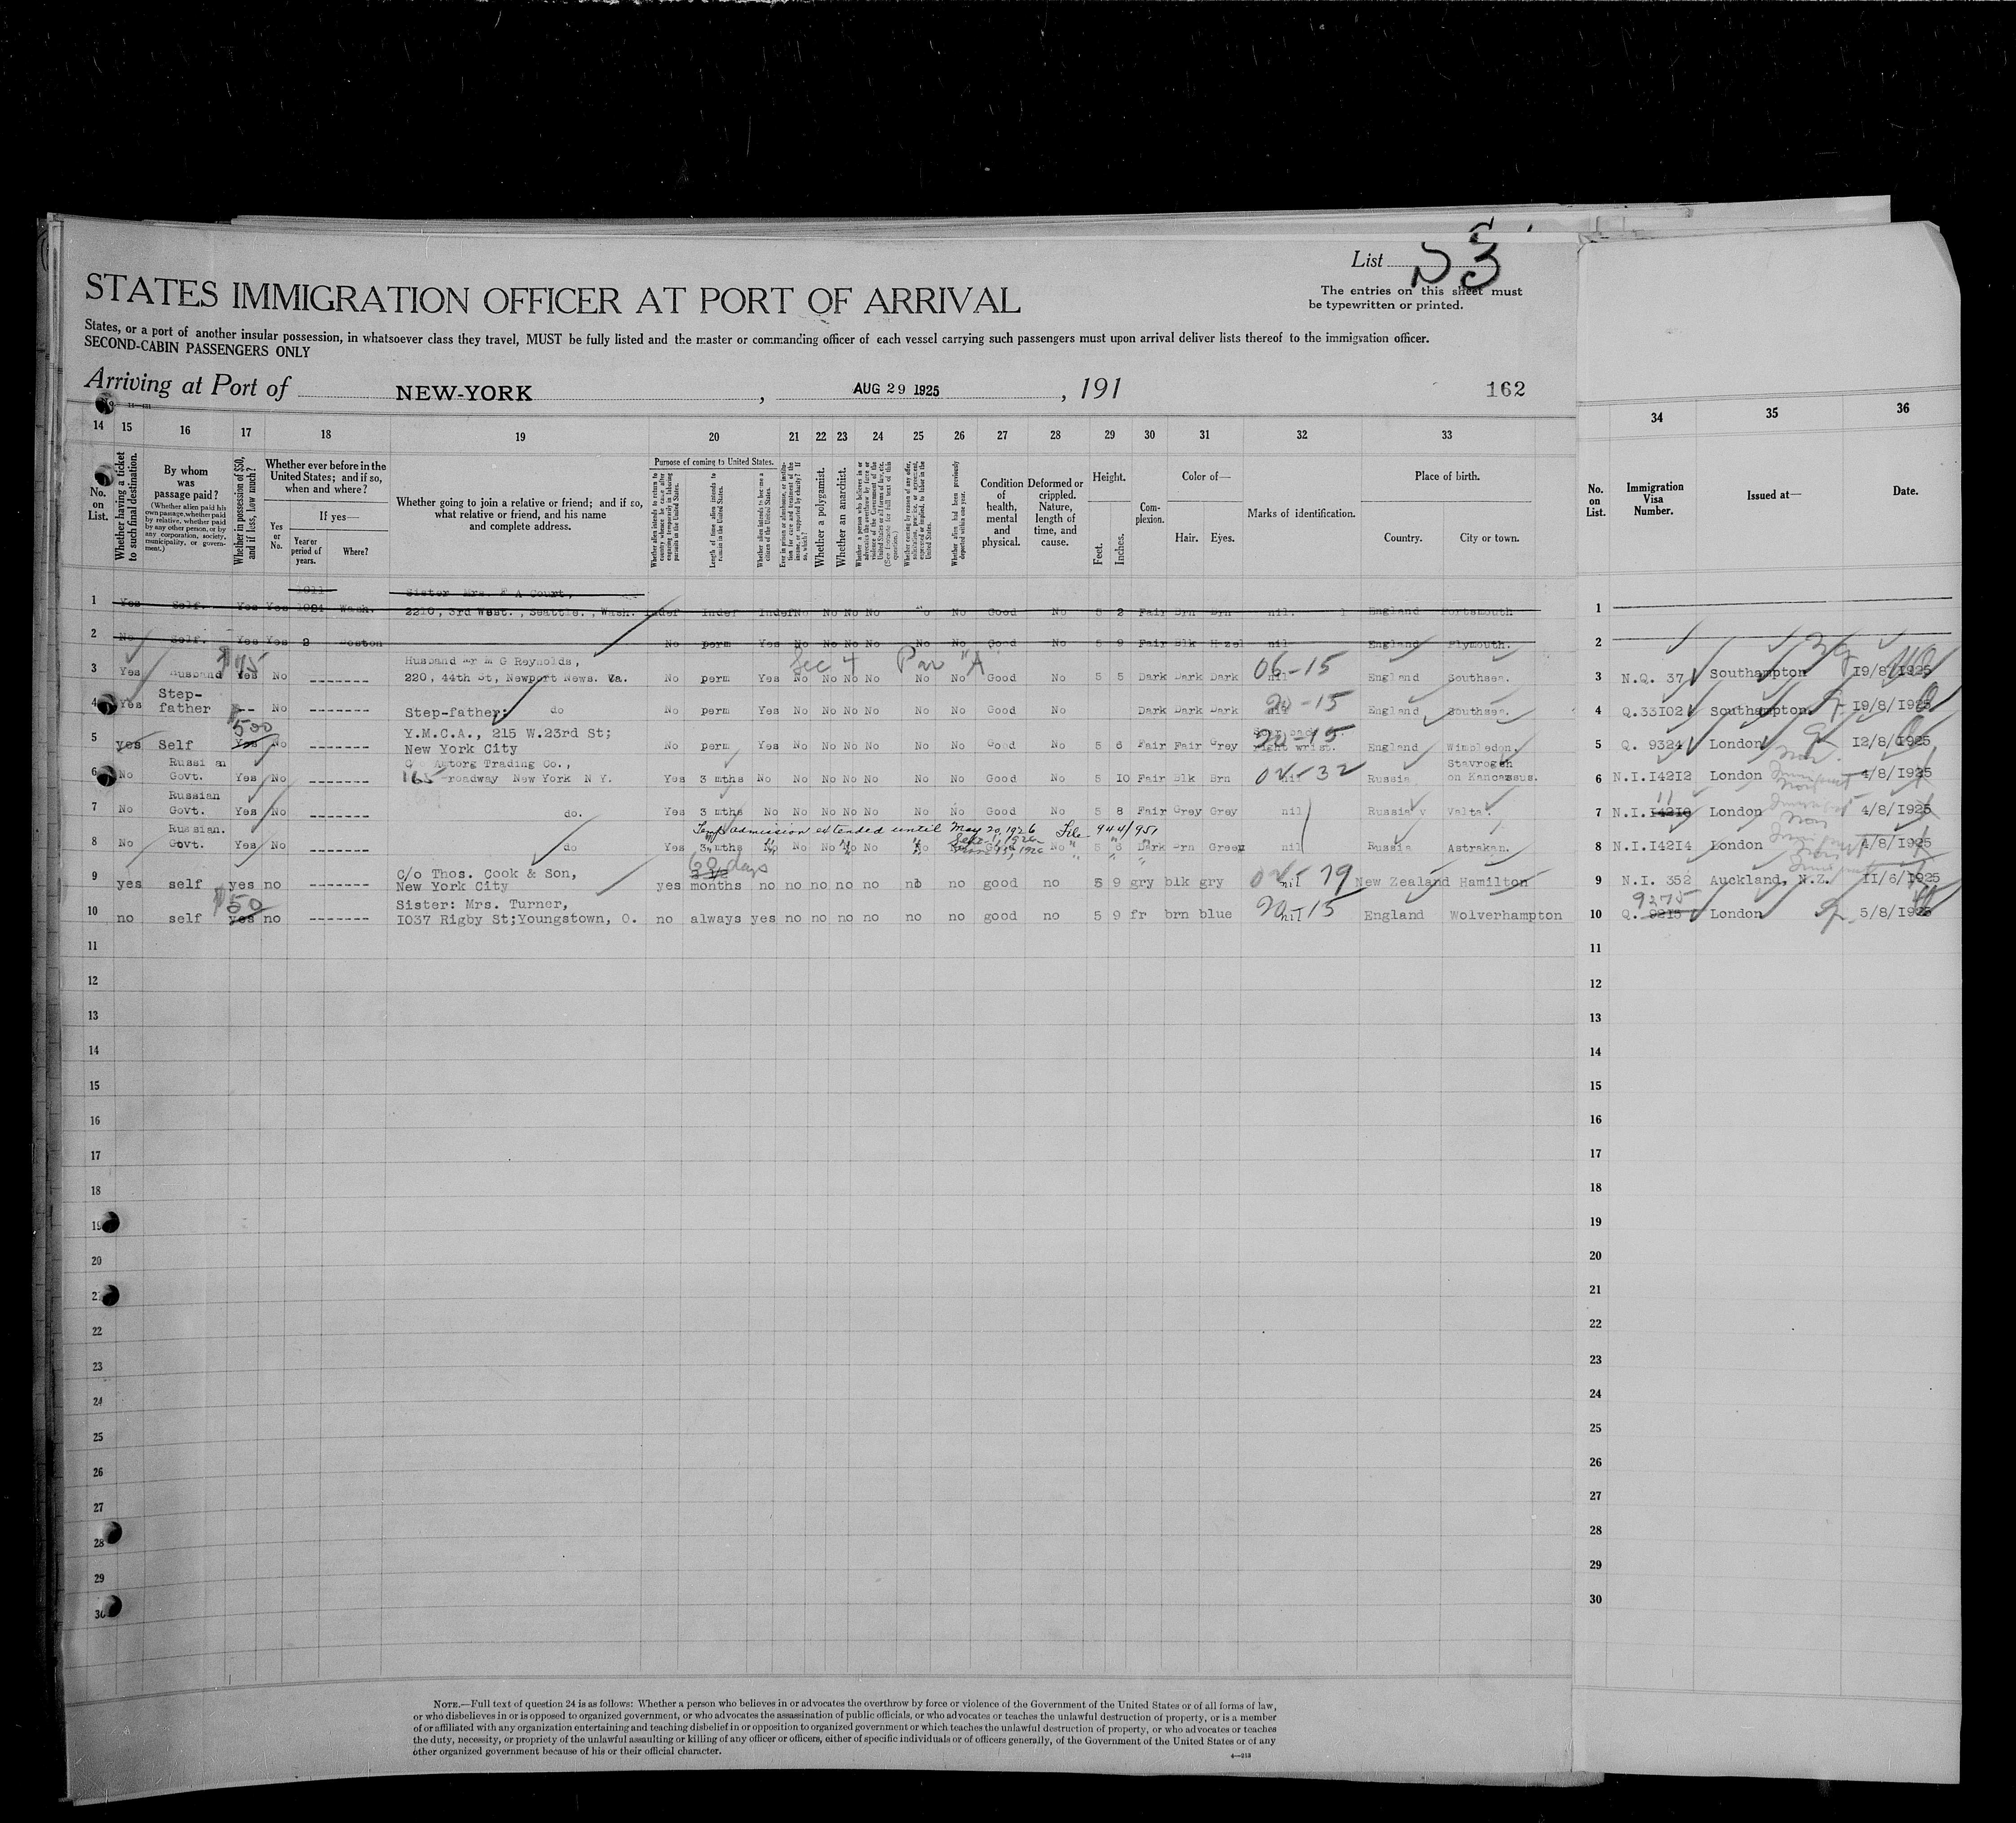 List 53
The entries on this sheet must
be typewritten or printed.
STATES IMMIGRATION OFFICER AT PORT OF ARRIVAL
States, or a port of another insular possession, in whatsoever class they travel, MUST be fully listed and the master or commanding officer of each vessel carrying such passengers must upon arrival deliver lists thereof to the immigration officer.
SECOND-CABIN PASSENGERS ONLY
Arriving at Port of NEW-YORK, AUG 29 1925, 191
162
14 15 16 17 18 19 20 21 22 23 24 25 26 27 28 29 30 31 32 33 34 35 36
No. on List.
Whether having a ticket to such final destination.
By whom was passage paid?
(Whether alien paid his own passage, whether paid by relative, whether paid by any other person, or by any corporation, society, municipality, or government.)
Whether in possession of $50, and if less, how much?
Whether ever before in the United States; and if so, when and where?
Yes or No.
If yes—
Year or period of years.
Where?
Whether going to join a relative or friend; and if so, what relative or friend, and his name and complete address.
Purpose of coming to United States.
Whether alien intends to return to country whence he came after engaging temporarily in laboring pursuits in the United States.
Length of time alien intends to remain in the United States.
Whether alien intends to become a citizen of the United States.
Ever in prison or almshouse, or institution for care and treatment of the insane, or supported by charity? If so, which?
Whether a polygamist.
Whether an anarchist.
Condition of health, mental and physical.
Deformed or crippled. Nature, length of time, and cause.
Height.
Feet.
Inches.
Complexion.
Color of—
Hair.
Eyes.
Marks of identification.
Place of birth.
Country.
City or town.
No. on List.
Immigration Visa Number.
Issued at—
Date.
1911
Sister Mrs. F A Court,
1 Yes Self. Yes Yes Wash. 2210, 3rd West., Seattle., Wash. Indef Indef Indef No No No No No No Good No 5 2 Fair Brn Brn nil. England Portsmouth 1
2 No Self. Yes Yes 2 Boston No perm Yes No No No No No No Good No 5 9 Fair Blk Hazel nil England Plymouth. 2
$45 Husband Mr M G Reynolds, Sec 4 Par "A" 06-15
3 Yes Husband Yes No ------- 220, 44th St, Newport News. Va. No perm Yes No No No No No No Good No 5 5 Dark Dark Dark nil England Southsea. 3 N.Q. 37 Southampton 19/8/1925
Step-
4 Yes father -- No ------- Step-father: do No perm Yes No No No No No No Good No Dark Dark Dark nil 20-15 England Southsea. 4 Q.33102 Southampton. 19/8/1925
$500 Y.M.C.A., 215 W.23rd St; 20-15
5 yes Self Yes No ------- New York City No perm Yes No No No No No No Good No 5 6 Fair Fair Grey right wrist. England Wimbledon. 5 Q. 9324 London 12/8/1925
Russian Amtorg Trading Co., Stavrogen
6 No Govt. Yes No ------- 165 roadway New York N Y. Yes 3 mths No No No No No No No Good No 5 10 Fair Blk Brn nil 02-32 Russia on Kancassus. 6 N.I.14212 London 4/8/1925
Russian
7 No Govt. Yes No ------- do. Yes 3 mths No No No No No No No Good No 5 8 Fair Grey Grey nil Russia Valta. 7 N.I.14210 11 London 4/8/1925
Russian. Temp admission extended until May 20, 1926 File 944/951
8 No Govt. Yes No ------- do Yes 3 mths No No No No No Good No 5 6 Dark Brn Green nil Russia Astrakan. 8 N.I.14214 London 4/8/1925
C/o Thos. Cook & Son, 60 days
9 yes self yes no ------- New York City yes 2 1/2 months no no no no no no no good no 5 9 gry blk gry nil 02-79 New Zealand Hamilton 9 N.I. 352 Auckland, N.Z. 11/6/1925
$50 Sister: Mrs. Turner, 9275
10 no self yes no ------- 1037 Rigby St;Youngstown, O. no always yes no no no no no no good no 5 9 fr brn blue nil 20-15 England Wolverhampton 10 Q. 9215 London 5/8/1925
11 11
12 12
13 13
14 14
15 15
16 16
17 17
18 18
19 19
20 20
21 21
22 22
23 23
24 24
25 25
26 26
27 27
28 28
29 29
30 30
NOTE.—Full text of question 24 is as follows: Whether a person who believes in or advocates the overthrow by force or violence of the Government of the United States or of all forms of law,
or who disbelieves in or is opposed to organized government, or who advocates the assassination of public officials, or who advocates or teaches the unlawful destruction of property, or is a member
of or affiliated with any organization entertaining and teaching disbelief in or opposition to organized government or which teaches the unlawful destruction of property, or who advocates or teaches
the duty, necessity, or propriety of the unlawful assaulting or killing of any officer or officers, either of specific individuals or of officers generally, of the Government of the United States or of any
other organized government because of his or their official character.